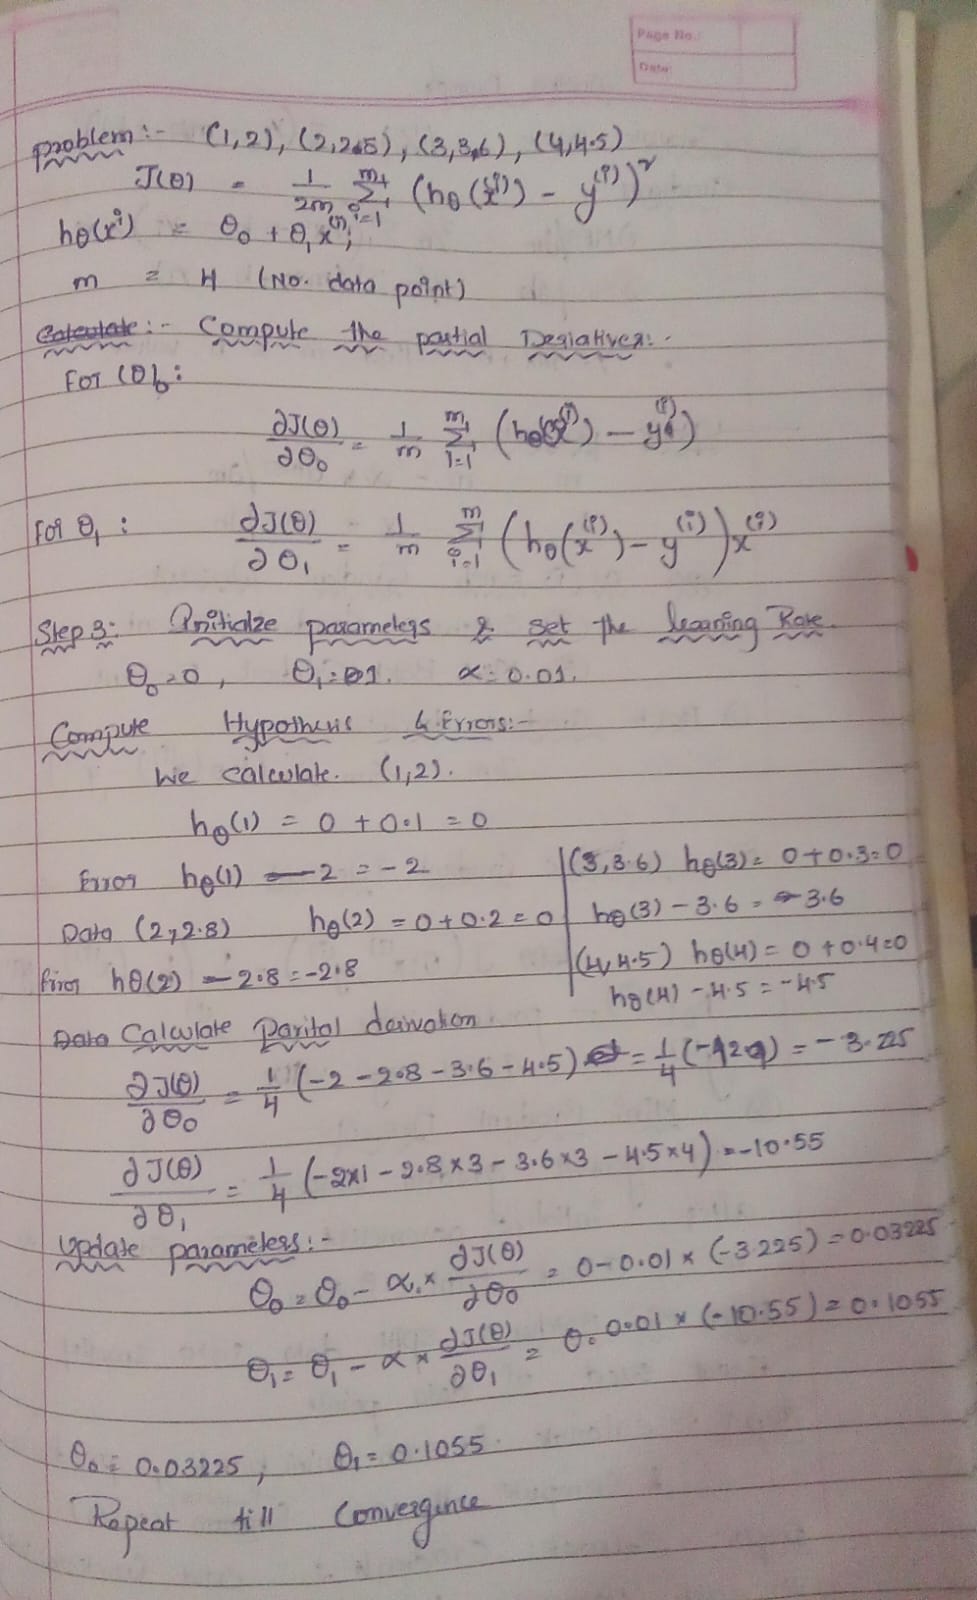 Page No.:
Date:
Problem :- (1,2), (2,2.8), (3,3.6), (4,4.5)
J(θ) = 1/2m Σ_{i=1}^{m} (hθ(x^(i)) - y^(i))²
hθ(x^i) = θ₀ + θ₁x^(i);
m = 4 (No. data point)
Calculate :- Compute the partial Deriatives:-
For (θ)₀:
∂J(θ)/∂θ₀ = 1/m Σ_{i=1}^{m} (hθ(x^(i)) - y^(i))
For θ₁ : ∂J(θ)/∂θ₁ = 1/m Σ_{i=1}^{m} (hθ(x^(i)) - y^(i)) x^(i)
Step 3: Initialze parameters & set the learning Rate.
θ₀ = 0, θ₁ = 01. α = 0.01.
Compute Hypothesis & Errors:-
We calculate. (1,2).
hθ(1) = 0 + 0.1 = 0
Error hθ(1) - 2 = -2
Data (2,2.8) hθ(2) = 0 + 0.2 = 0
Error hθ(2) - 2.8 = -2.8
(3,3.6) hθ(3) = 0 + 0.3 = 0
hθ(3) - 3.6 = -3.6
(4,4.5) hθ(4) = 0 + 0.4 = 0
hθ(4) - 4.5 = -4.5
Data Calculate Parital derivation
∂J(θ)/∂θ₀ = 1/4 (-2 - 2.8 - 3.6 - 4.5) = 1/4 (-12.9) = -3.225
∂J(θ)/∂θ₁ = 1/4 (-2x1 - 2.8x3 - 3.6x3 - 4.5x4) = -10.55
Update parameters:-
θ₀ = θ₀ - α × ∂J(θ)/∂θ₀ = 0 - 0.01 × (-3.225) = 0.03225
θ₁ = θ₁ - α × ∂J(θ)/∂θ₁ = 0 - 0.01 × (-10.55) = 0.1055
θ₀ = 0.03225, θ₁ = 0.1055
Repeat till Convergence